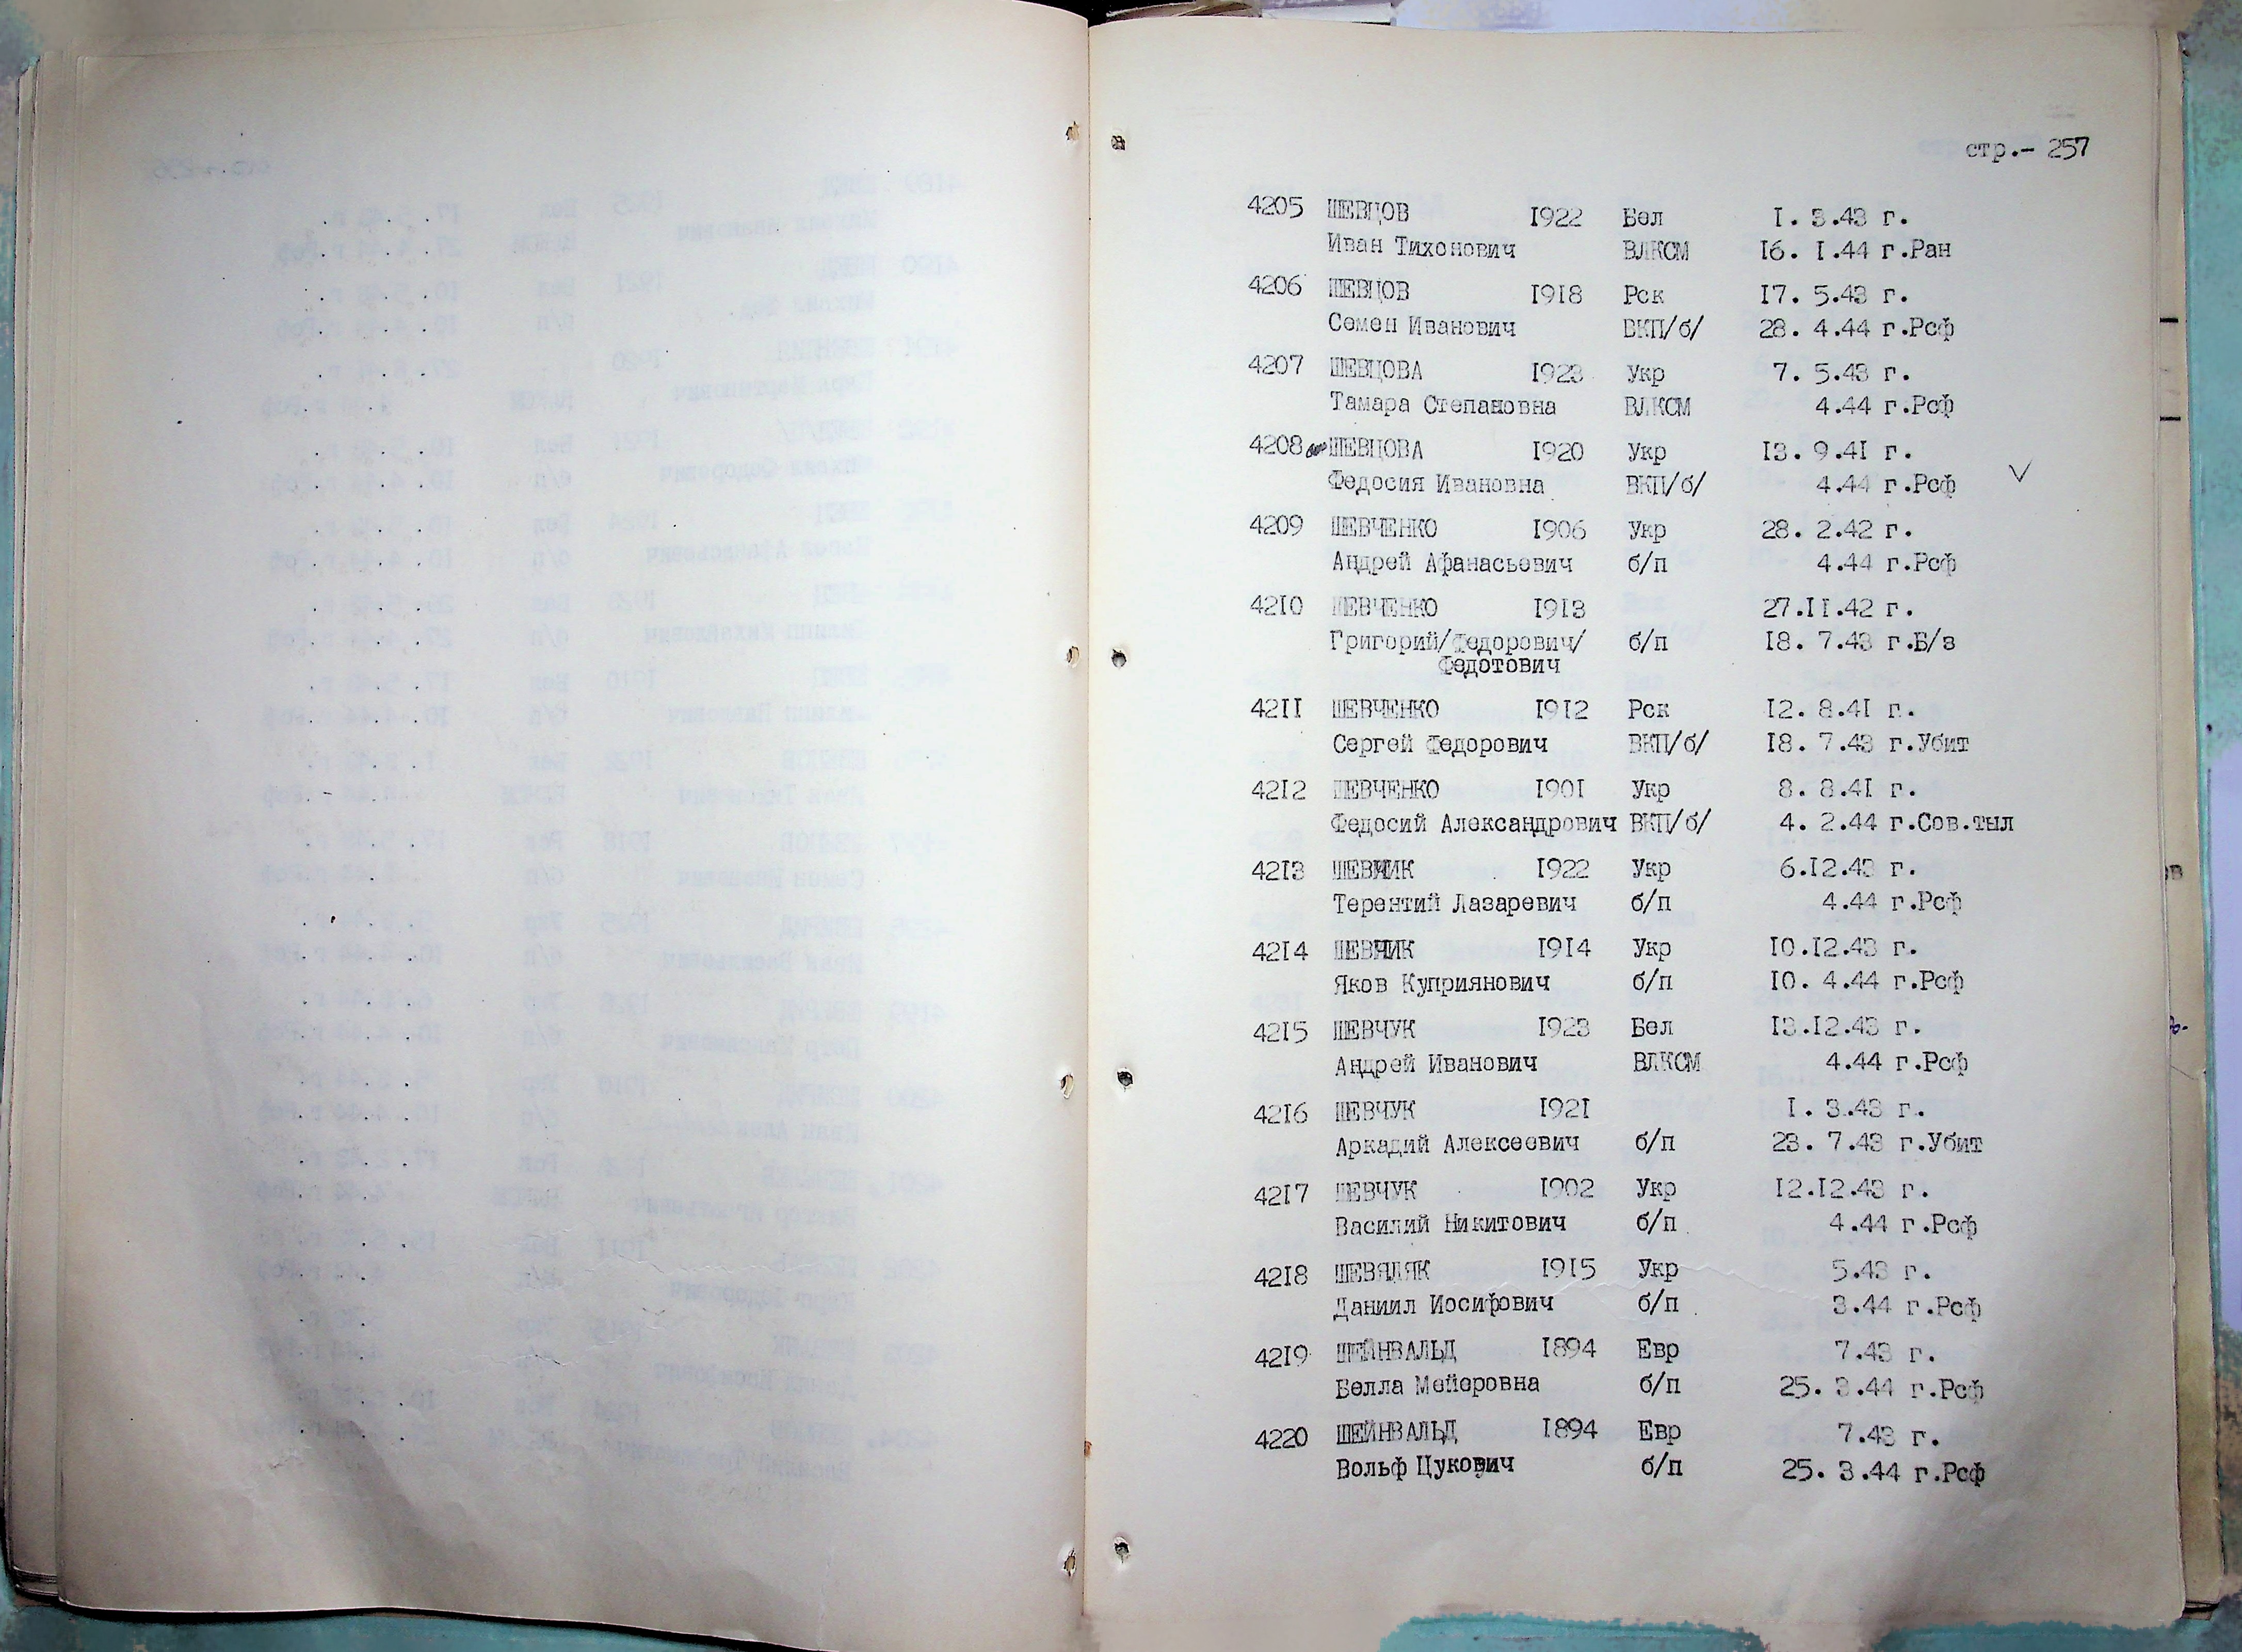 стр.- 257
4205 ШЕВЦОВ 1922 Бел 1. 3.43 г.
Иван Тихонович ВЛКСМ 16. 1.44 г.Ран
4206 ШЕВЦОВ 1918 Рск 17. 5.43 г.
Семен Иванович ВКП/б/ 28. 4.44 г.Рсф
4207 ШЕВЦОВА 1923 Укр 7. 5.43 г.
Тамара Степановна ВЛКСМ 4.44 г.Рсф
4208 ШЕВЦОВА 1920 Укр 13. 9.41 г.
Федосия Ивановна ВКП/б/ 4.44 г.Рсф
4209 ШЕВЧЕНКО 1906 Укр 28. 2.42 г.
Андрей Афанасьевич б/п 4.44 г.Рсф
4210 ШЕВЧЕНКО 1913 27.11.42 г.
Григорий/Федорович/ б/п 18. 7.43 г.Б/з
Федотович
4211 ШЕВЧЕНКО 1912 Рск 12. 8.41 г.
Сергей Федорович ВКП/б/ 18. 7.43 г.Убит
4212 ШЕВЧЕНКО 1901 Укр 8. 8.41 г.
Федосий Александрович ВКП/б/ 4. 2.44 г.Сов.тыл
4213 ШЕВЧИК 1922 Укр 6.12.43 г.
Терентий Лазаревич б/п 4.44 г.Рсф
4214 ШЕВЧИК 1914 Укр 10.12.43 г.
Яков Куприянович б/п 10. 4.44 г.Рсф
4215 ШЕВЧУК 1923 Бел 13.12.43 г.
Андрей Иванович ВЛКСМ 4.44 г.Рсф
4216 ШЕВЧУК 1921 1. 3.43 г.
Аркадий Алексеевич б/п 23. 7.43 г.Убит
4217 ШЕВЧУК 1902 Укр 12.12.43 г.
Василий Никитович б/п 4.44 г.Рсф
4218 ШЕВЯДЯК 1915 Укр 5.43 г.
Даниил Иосифович б/п 3.44 г.Рсф
4219 ШЕЙНВАЛЬД 1894 Евр 7.43 г.
Белла Мейеровна б/п 25. 3.44 г.Рсф
4220 ШЕЙНВАЛЬД 1894 Евр 7.43 г.
Вольф Цукович б/п 25. 3.44 г.Рсф